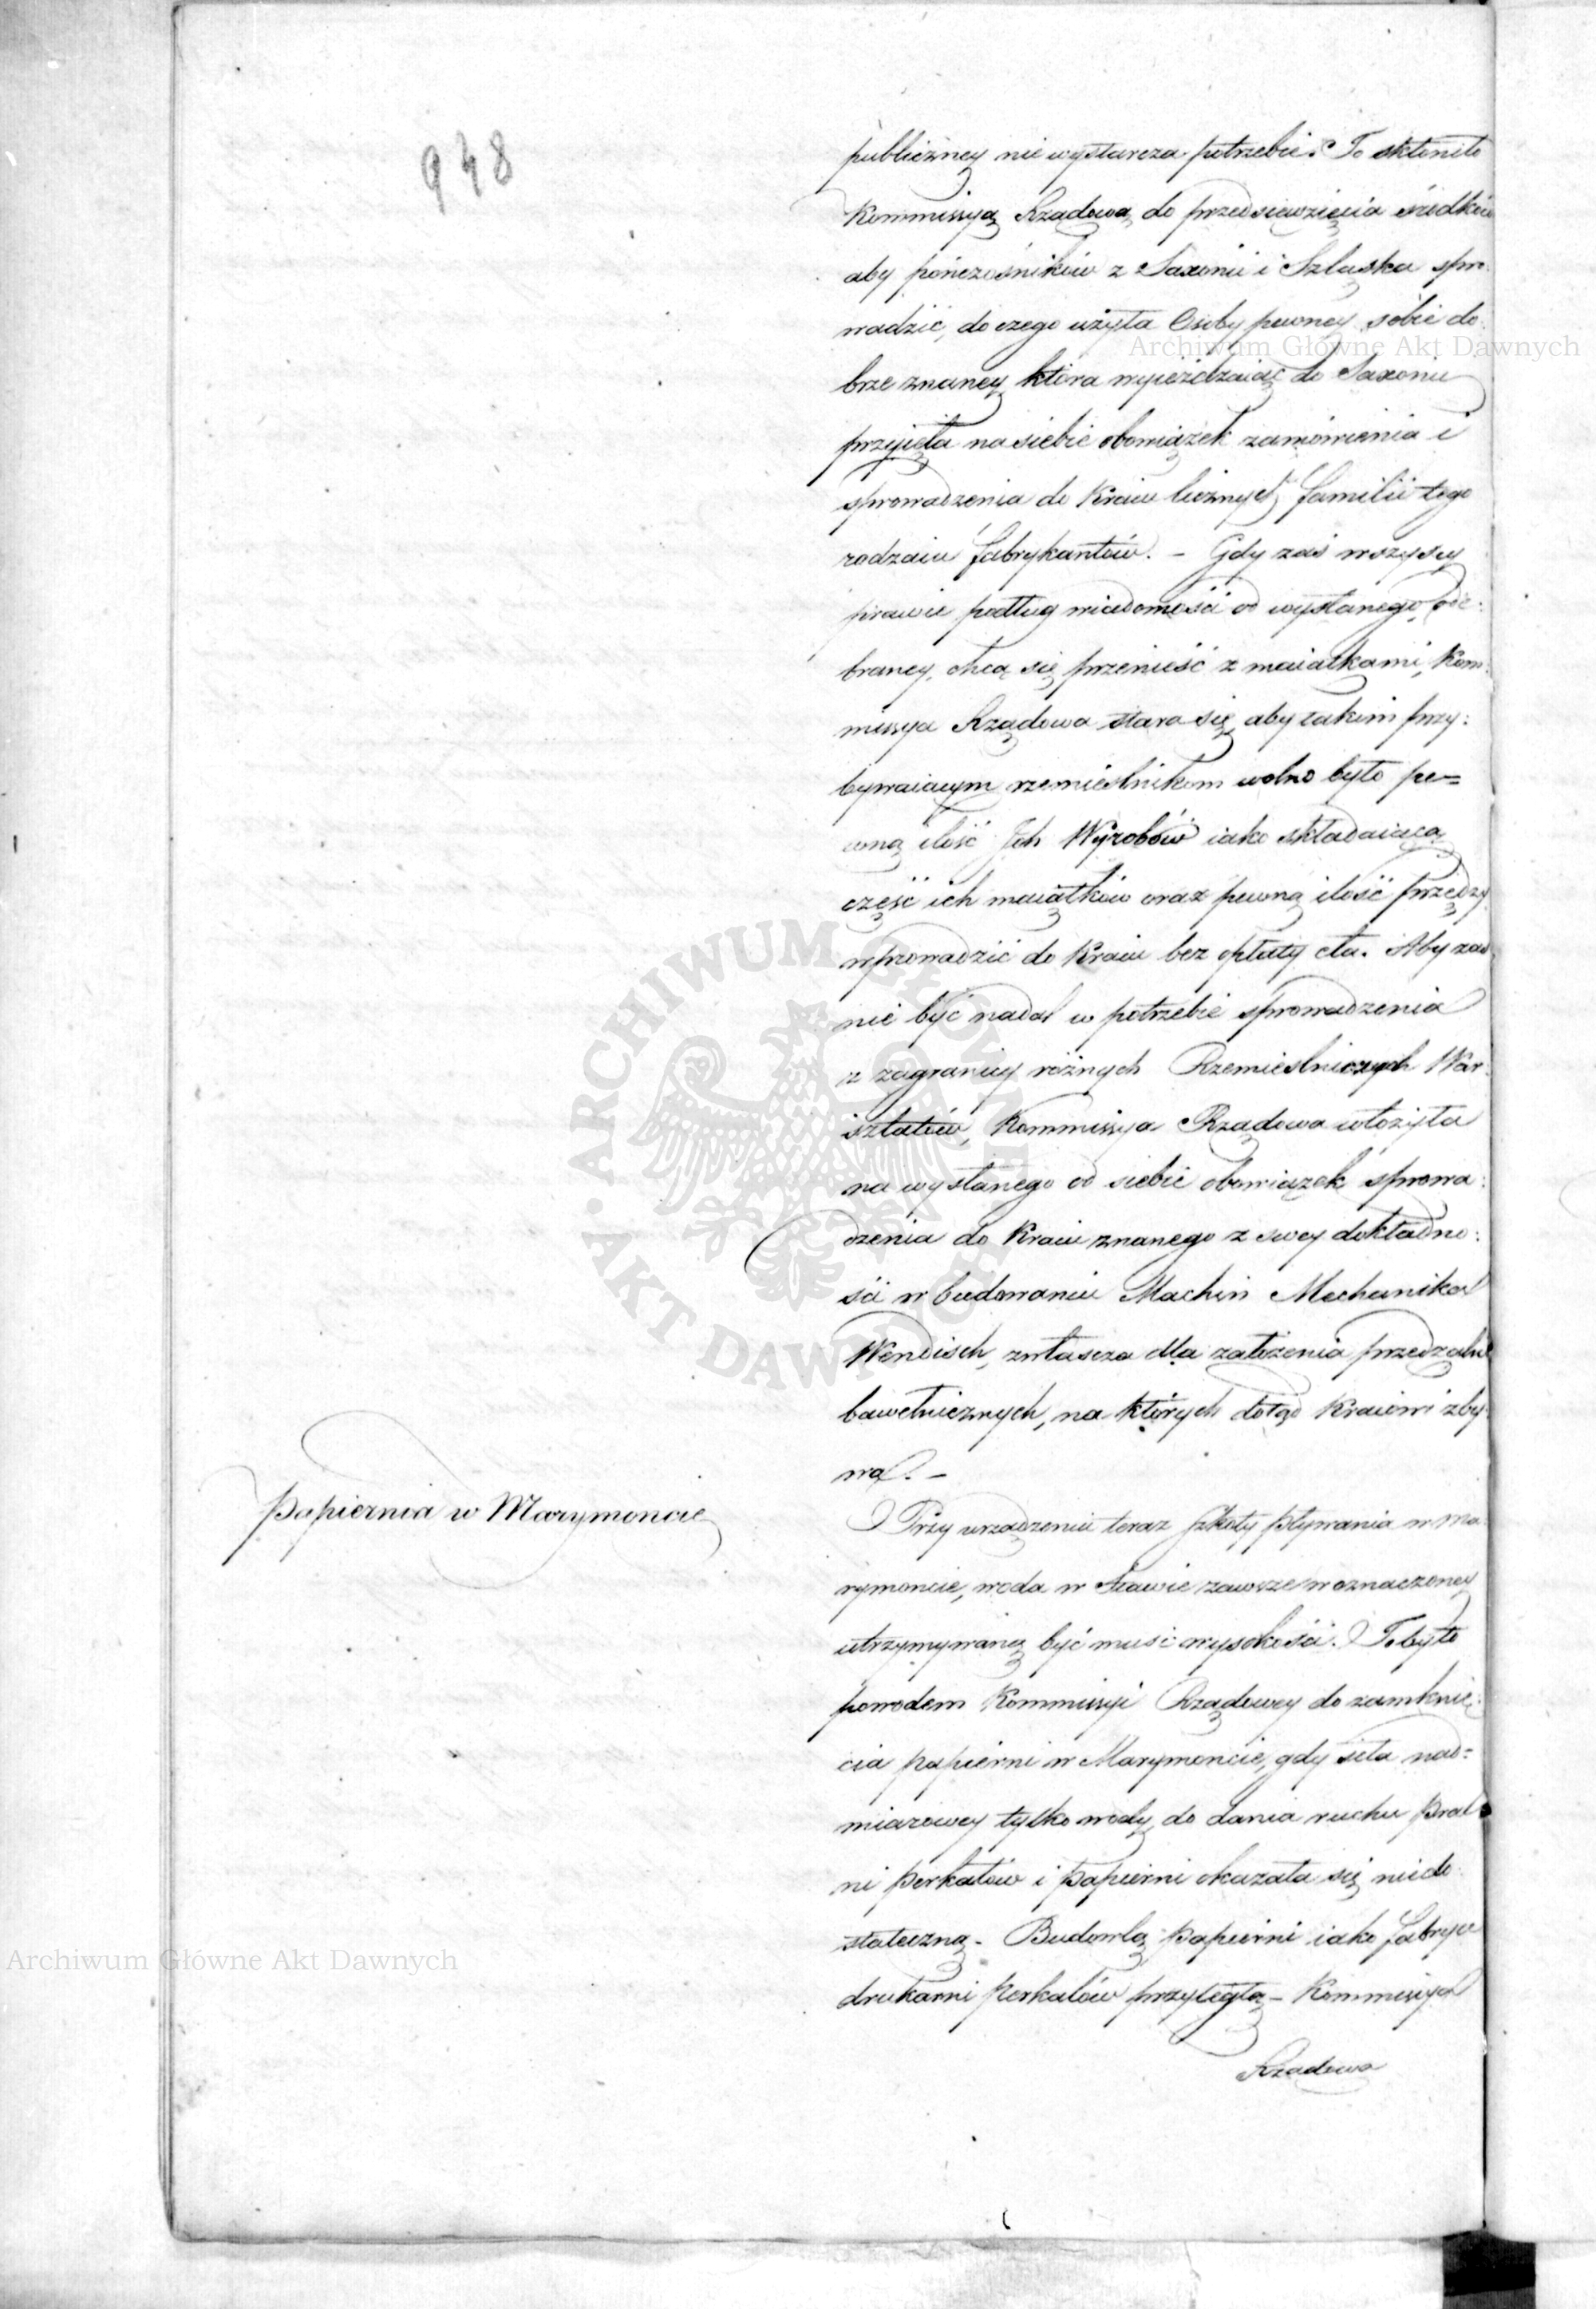 948
publiczney nie wystarcza potrzebie. To skłoniło
Kommissyą Rządową do przedsięwzięcia środków
aby pończośników z Saxonii i Szląska spro-
wadzić, do czego użyła Osoby pewney sobie do-
brze znaney, która wyieżdzaiąc do Saxonii
przyięła na siebie obowiązek zamówienia i
sprowadzenia do Kraiu licznych familii tego
rodzaiu fabrykantów. – Gdy zaś wszyscy
prawie podług wiadomości od wysłanego ode-
braney, chcą się przenieść z maiątkami, Kom-
missya Rządowa stara się, aby takim przy-
bywaiącym rzemieślnikom wolno było pe=
wną ilość Ich Wyrobów iako składaiącą
część ich maiątków oraz pewną ilość przędzy
wprowadzić do Kraiu bez opłaty cła. Aby zaś
nie być nadal w potrzebie sprowadzenia
z zagranicy różnych Rzemieślniczych War-
sztatów, Kommissya Rządowa włożyła
na wysłanego od siebie obowiązek sprowa-
dzenia do Kraiu znanego z swey dokładno-
ści w budowaniu Machin Mechanika
Wendisch, zwłaszcza dla założenia przędzalni
bawełnicznych, na których dotąd Kraiowi zby-
wa. –
Papiernia w Marymoncie
Przy urządzeniu teraz szkoły pływania w Ma-
rymoncie, woda w stawie zawsze w oznaczoney
utrzymywaną być musi wysokości. To było
powodem Kommissyi Rządowey do zamknię-
cia papierni w Marymoncie, gdy siła nad=
miarowey tylko wody, do dania ruchu Pral-
ni perkalów i papierni okazała się niedo-
stateczną. Budowlą papierni iako fabryce
drukarni Perkalów przyległą – Kommissya
Rządowa
Archiwum Główne Akt Dawnych
Archiwum Główne Akt Dawnych
ARCHIWUM GŁÓWNE AKT DAWNYCH